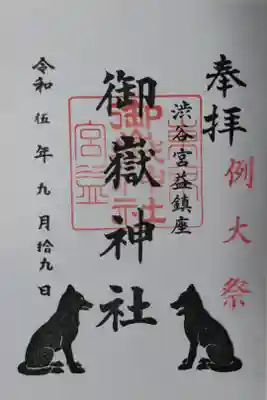 奉拝
例大祭
渋谷宮益鎮座
御嶽神社
令和伍年九月拾九日